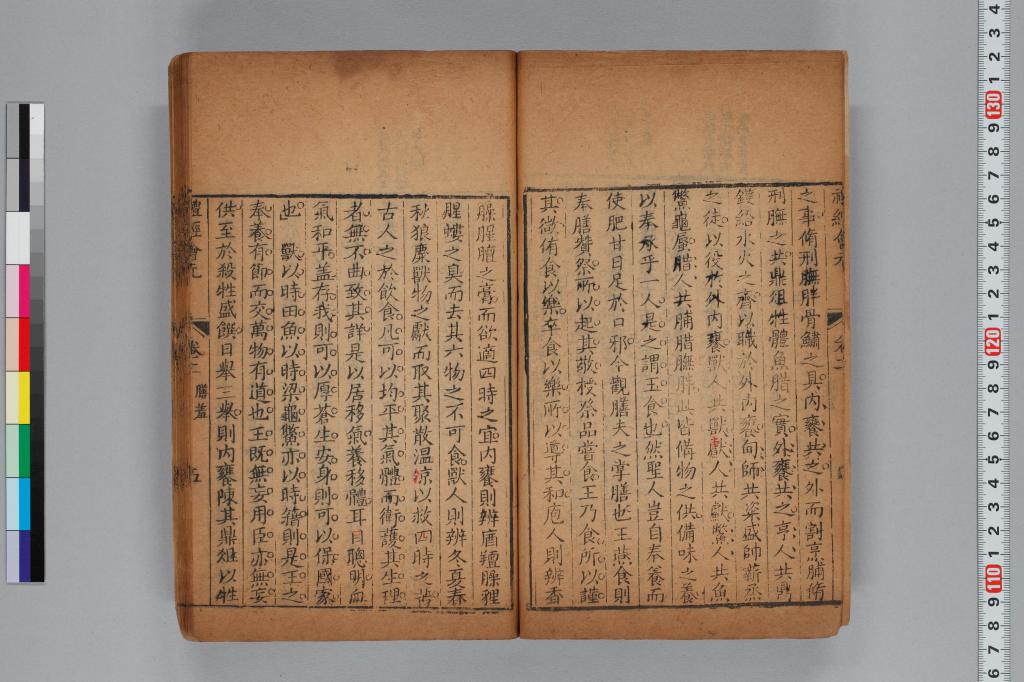 之事脩刑膴胖骨鱐之具内饔共之外而割烹脯脩
刑膴之共鼎俎牲體魚腊之實外饔共之亨人共鼎
鑊給水火之齊以職於外内饔甸師共粢盛帥薪烝
之徒以役於外内饔獸人共獸𩺰人共魚
鱉龜蜃腊人共脯腊膴胖此皆僃物之供僃味之養
以奉乎一人是之謂王食也然聖人豈自奉養而
使肥甘日足於口邪今觀膳夫之掌膳也王燕食則
奉膳贊祭所以起其敬授祭品嘗食王乃食所以謹
其微侑食以樂卒食以樂所以導其和庖人則辨香
臊腥膻之膏而欲適四時之宜内饔則辨庮羶臊狸
腥螻之臭而去其六物之不可食獸人則辨冬夏春
秋狼麋獸物之獻而取其聚散温涼以救四時之苦
古人之於飲食凡可以均平其氣體而衛護其生理
者無不曲致其詳是以居移氣養移體耳目聰明血
氣和平盖存我則可以厚蒼生安身則可以保國家
也獸以時田魚以時梁龜鱉亦以時籍則是王之
奉養有節而交萬物有道也王既無妄用臣亦無妄
供至於殺牲盛饌日舉三舉則内饔陳其鼎俎以牲
禮經會元
卷二
膳羞
五